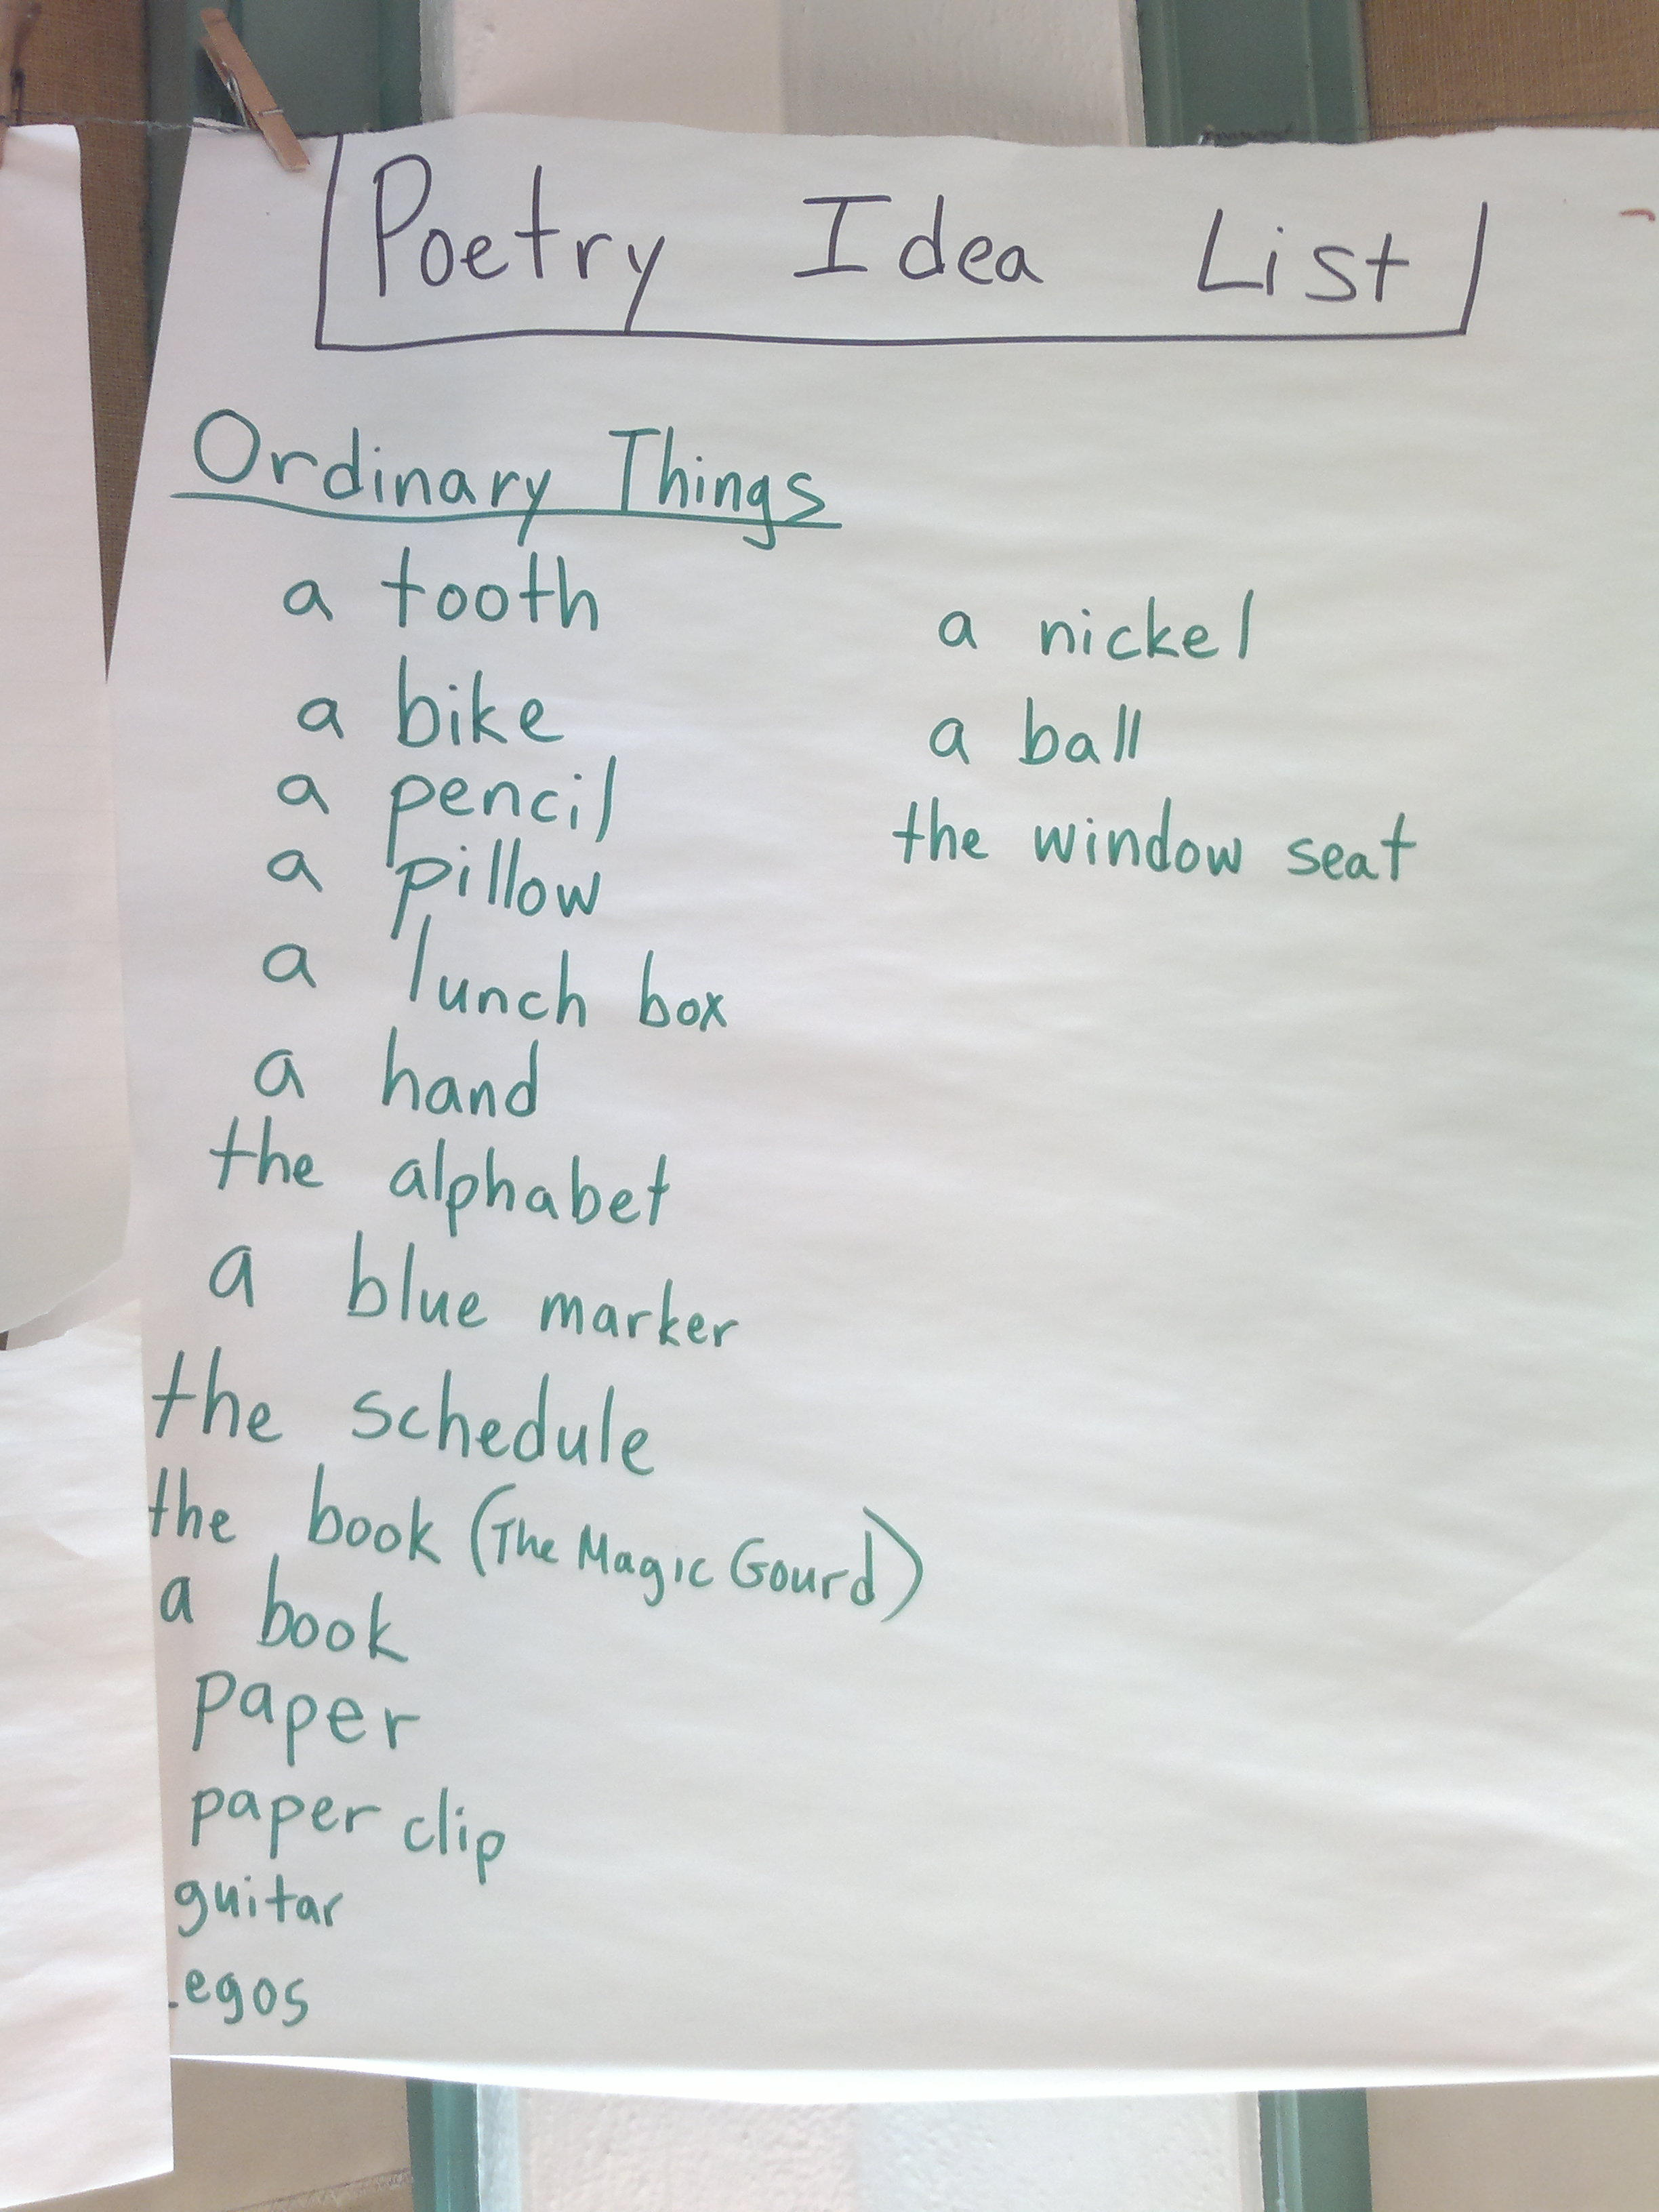 Poetry Idea List
Ordinary Things
a tooth
a bike
a pencil
a pillow
a lunch box
a hand
the alphabet
a blue marker
the schedule
the book (The Magic Gourd)
a book
paper
paper clip
guitar
Legos
a nickel
a ball
the window seat